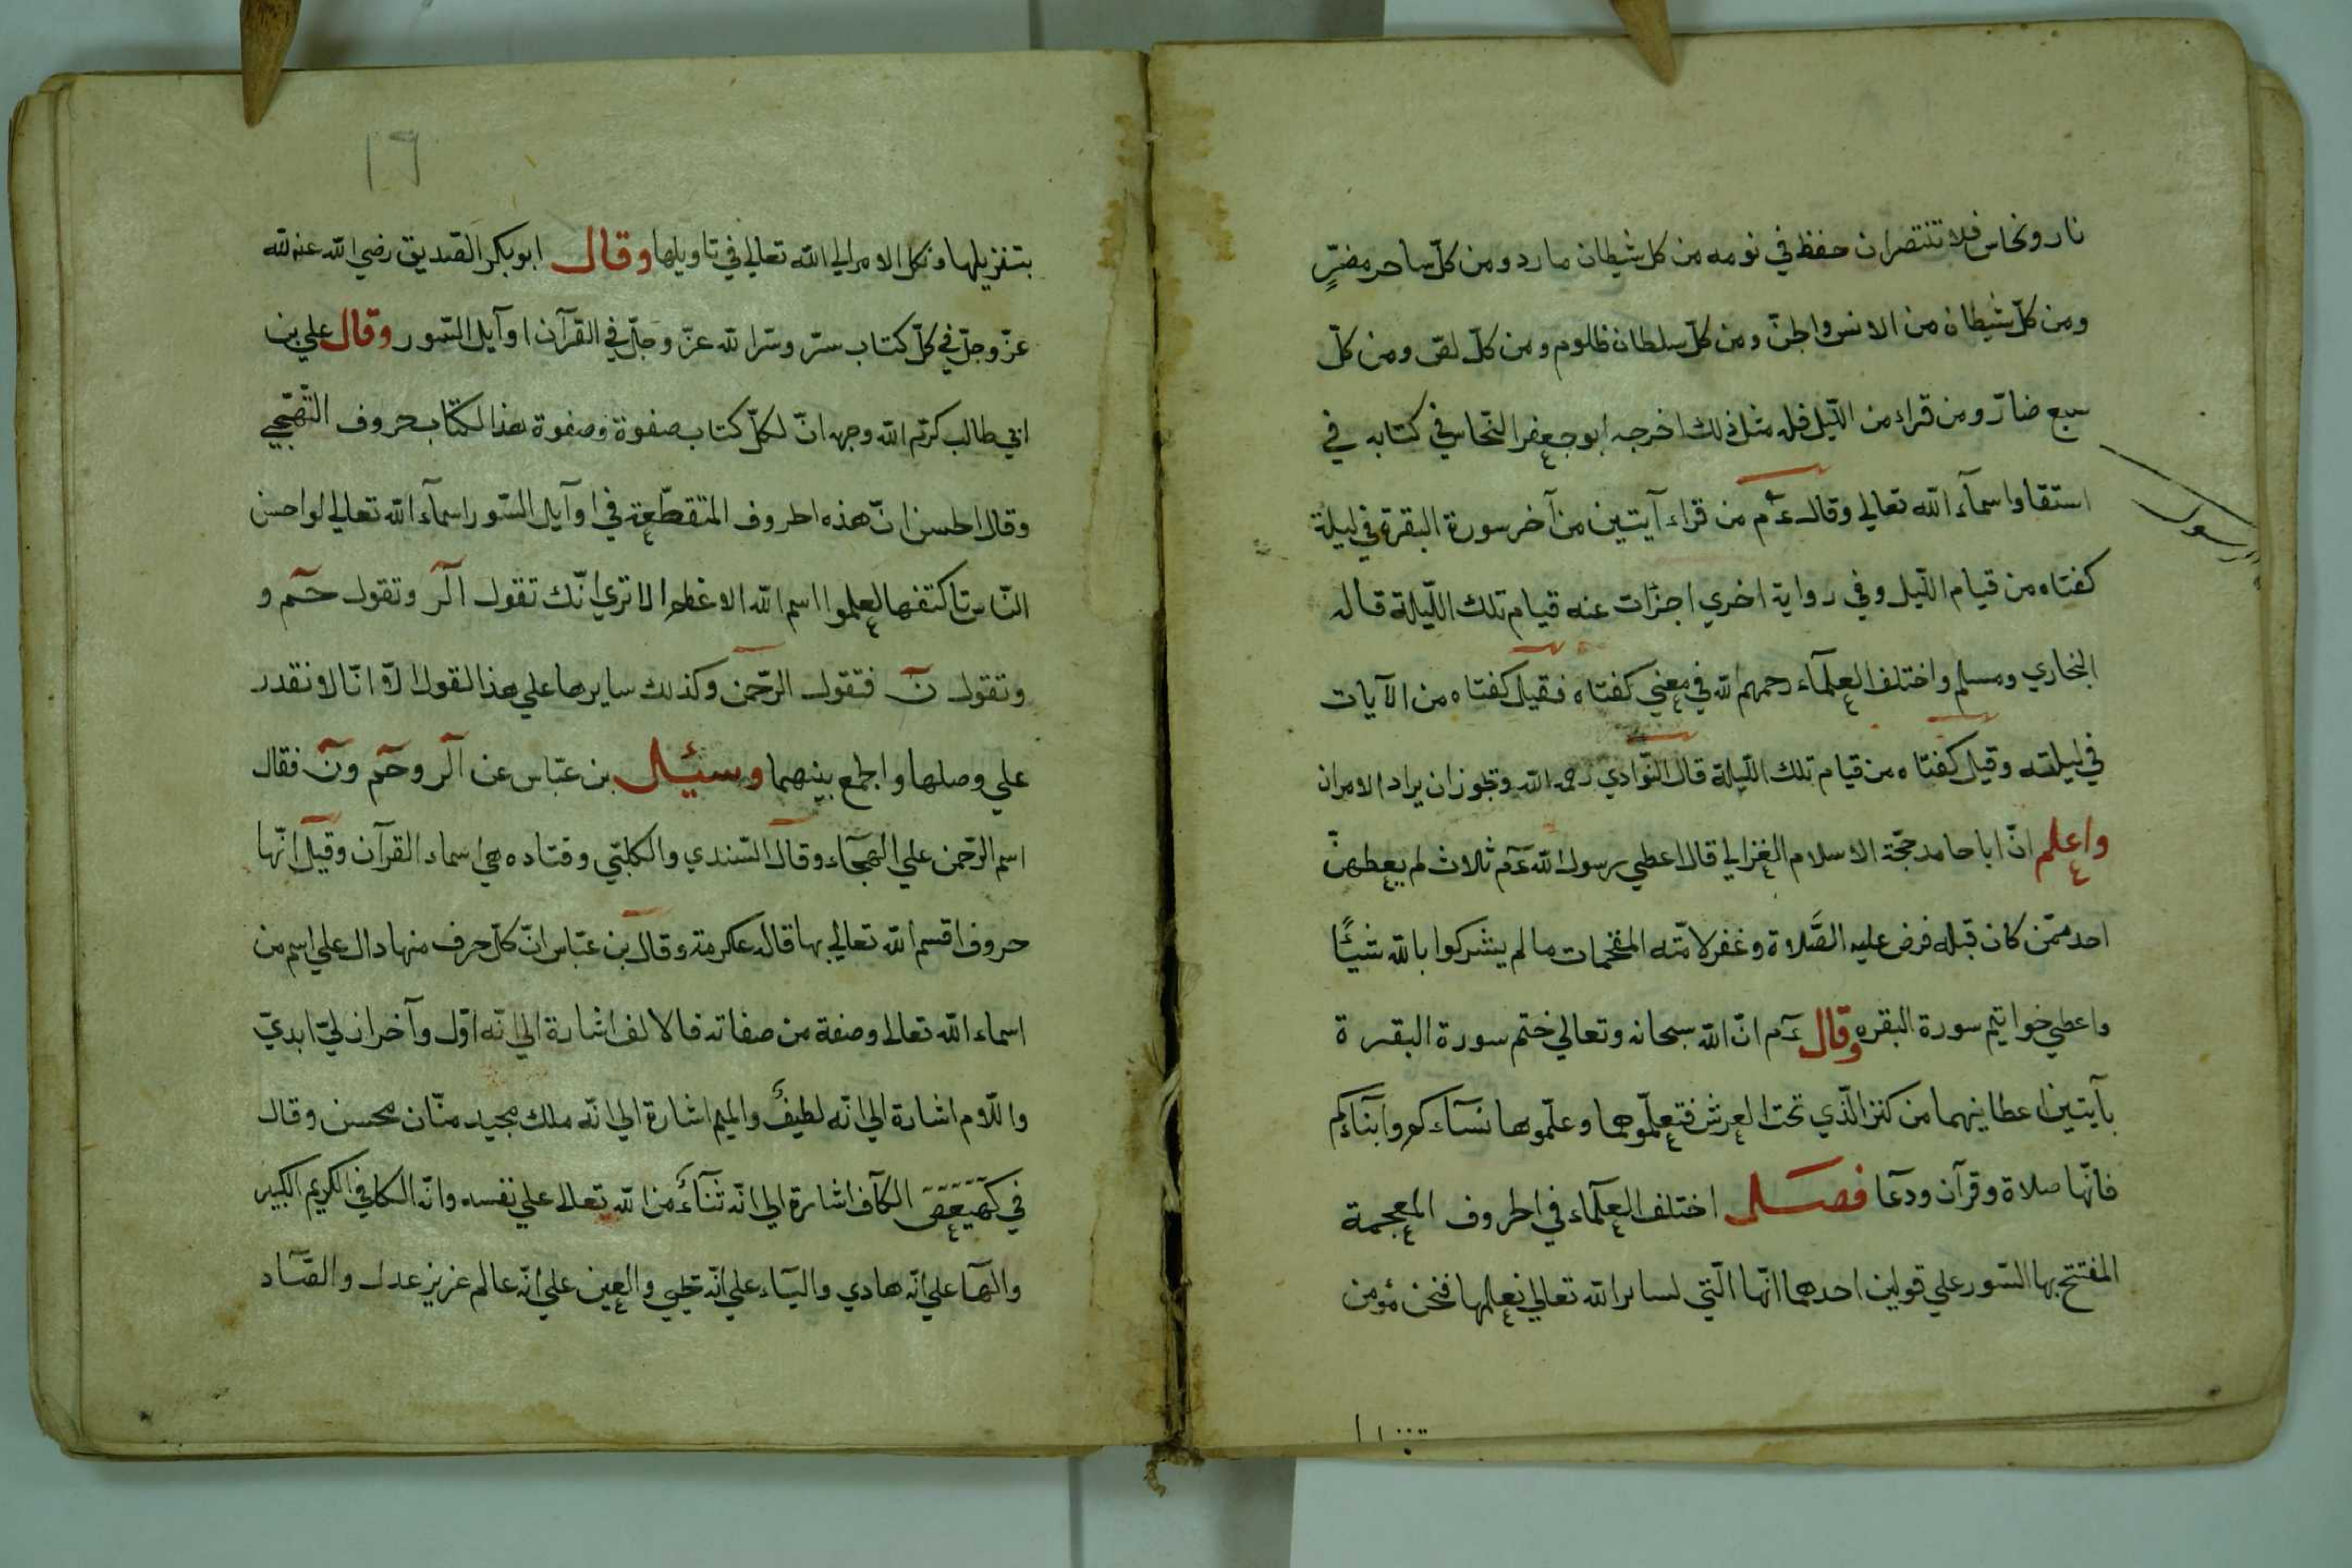 نار ونحاس فلا تنتصران حفظ في نومه من كل شيطان مارد ومن كلّ ساحر مضرٍّ
ومن كلّ شيطان من الانس والجنّ ومن كلّ سلطان ظلوم ومن كلّ لصّ ومن كلّ
سبع ضارّ ومن قراء من اللّيل فله مثل ذلك اخرجه ابو جعفر النّحاس في كتابه في
استقاوا سمآء اللّه تعالي وقال عم من قراء آيتين من آخر سورة البقرة في ليلة
كفتاه من قيام اللّيل وفي رواية اخري اجزات عنه قيام تلك اللّيلة قاله
البخاري ومسلم واختلف العلمآء رحمهم اللّه في معني كفتاه فقيل كفتاه من الآيات
في ليلته وقيل كفتاه من قيام تلك اللّيلة قال النّوادي رحمه اللّه وتجوز ان يراد الامران
واعلم انّ ابا حامد حجّة الاسلام الغزالي قال اعطي رسول اللّه عم ثلاث لم يعطهنّ
احد ممّن كان قبله فرض عليه الصّلاة وغفر لامّته المقحمات ما لم يشركوا باللّه شيئًا
واعطي خواتيم سورة البقره وقال عم انّ اللّه سبحانه وتعالي ختم سورة البقرة
بآيتين اعطانيهما من كنز الّذي تحت العرش فتعلّموهما وعلّموها نسآءكم وابنآءكم
فانّها صلاة وقرآن ودعآ فصل اختلف العلمآء في الحروف المعجمة
المفتتح بها السّور علي قولين احدهما انّها الّتي لساير اللّه تعالي نعلمها فنحن نؤمن
١٩
بتنزيلها ونكل الامر الي اللّه تعالي في تاويلها وقال ابو بكر الصّديق رضي اللّه عنه للّه
عزّ وجلّ في كلّ كتاب سرّ وسّر اللّه عزّ وجلّ في القرآن اوآيل السّور وقال علي بن
ابي طالب كرّم اللّه وجهه انّ لكلّ كتاب صفوة وصفوة هذا الكتاب حروف التّهجّي
وقال الحسن انّ هذه الحروف المتقطّعة في اوآيل السّور اسمآء اللّه تعالي لو احسن
النّاس تاكتفها لعلموا اسم اللّه الاعظم الا تري انّك تقول الٓر وتقول حٓم و
وتقول نٓ فتقول الرّحمن وكذلك سايرها علي هذا القول الّا انّا لا نقدر
علي وصلها والجمع بينهما وسئيل بن عبّاس عن الٓر وحٓم ونٓ فقال
اسم الرّحمن علي الهجآء وقال السّندي والكلبّي وقتاده هي اسماء القرآن وقيل انّها
حروف اقسم اللّه تعالي بها قاله عكرمة وقال بن عبّاس انّ كلّ حرف منها دال علي اسم من
اسماء اللّه تعالي وصفة من صفاته فالالف اشارة الي انّه اوّل وآخر ازليّ ابديّ
والّلام اشارة الي انّه لطيف والميم اشارة الي انّه ملك مجيد منّان محسن وقال
في كهيعص الكآف اشارة الي انّه ثنآء من اللّه تعالي علي نفسه وانّه الكافي الكريم الكبير
والهآ علي انّه هادي واليآء علي انّه والعين علي انّه عالم عزيز عدل والصّاد